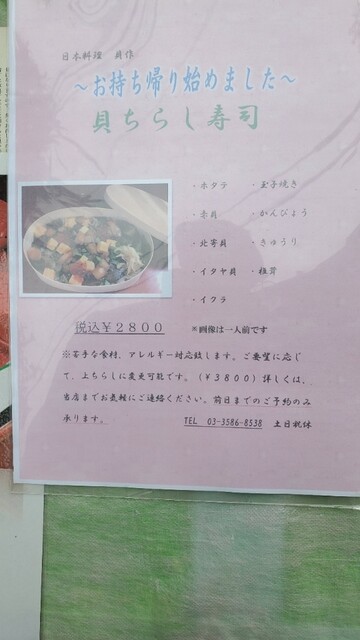 日本料理 貝作
～お持ち帰り始めました～
貝ちらし寿司
・ホタテ ・玉子焼き
・赤貝 ・かんぴょう
・北寄貝 ・きゅうり
・イタヤ貝 ・椎茸
・イクラ
税込￥2800 ※画像は一人前です
※苦手な食材、アレルギー対応致します。ご要望に応じ
て、上ちらしに変更可能です。（￥3800）詳しくは、
当店までお気軽にご連絡ください。前日までのご予約のみ
承ります。 TEL 03-3586-8538 土日祝休